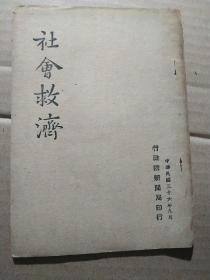 社會救濟
中華民國三十六年九月
行政院新聞局印行